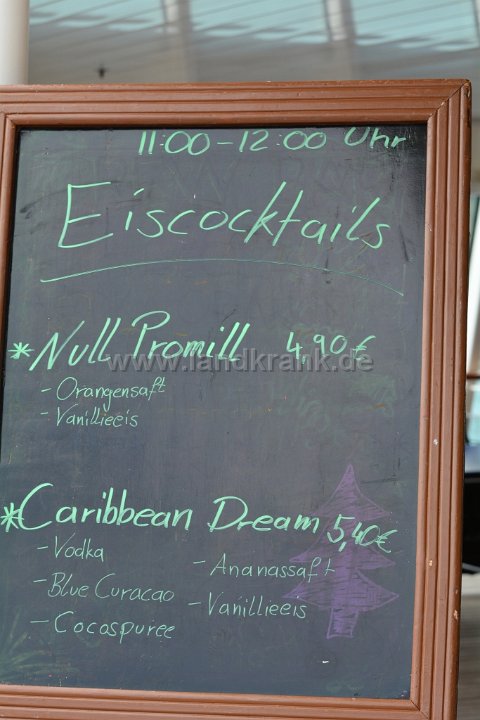 11:00-12:00 Uhr
Eiscocktails
*Null Promill 4,90€
www.landkrank.de
- Orangensaft
- Vanillieeis
*Caribbean Dream 5,40€
- Vodka
- Ananassaft
- Blue Curacao
- Vanillieeis
- Cocospuree